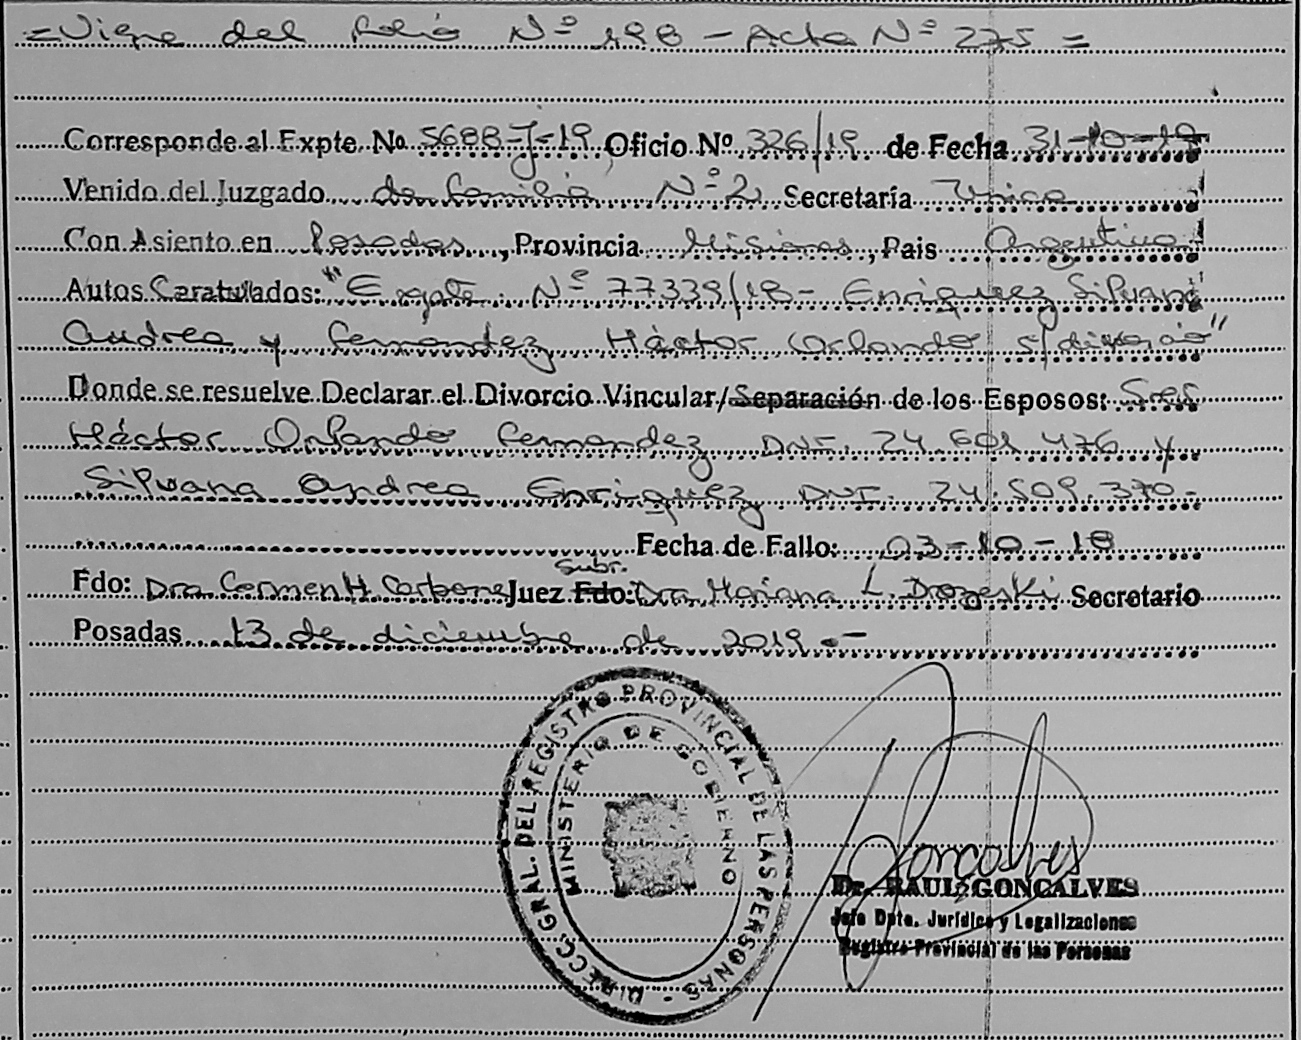 =Viene del folio Nº 198 - Acta Nº 275=
Corresponde al Expte. Nº 5688-J-19 Oficio Nº 326/19 de Fecha 31-10-19
Venido del Juzgado de familia Nº 2 Secretaría Unica
Con Asiento en Posadas, Provincia Misiones, Pais Argentina
Autos Caratulados: "Expte Nº 77339/18- Enriquez Silvana
Andrea y Fernandez Héctor Orlando s/divorcio"
Donde se resuelve Declarar el Divorcio Vincular/Separación de los Esposos: Sres
Héctor Orlando Fernandez DNI. 24.601.476 y
Silvana Andrea Enriquez DNI. 24.509.370-
Fecha de Fallo: 03-10-18
Subr.
Fdo: Dra Carmen H. Carbone Juez Fdo: Dra Mariana L. Drozeski Secretario
Posadas 13 de diciembre de 2019.-
DIRECC. GRAL. DEL REGISTRO PROVINCIAL DE LAS PERSONAS -
MINISTERIO DE GOBIERNO
Goncalves
Dr. RAUL GONCALVES
Jefe Dpto. Jurídico y Legalizaciones
Registro Provincial de las Personas